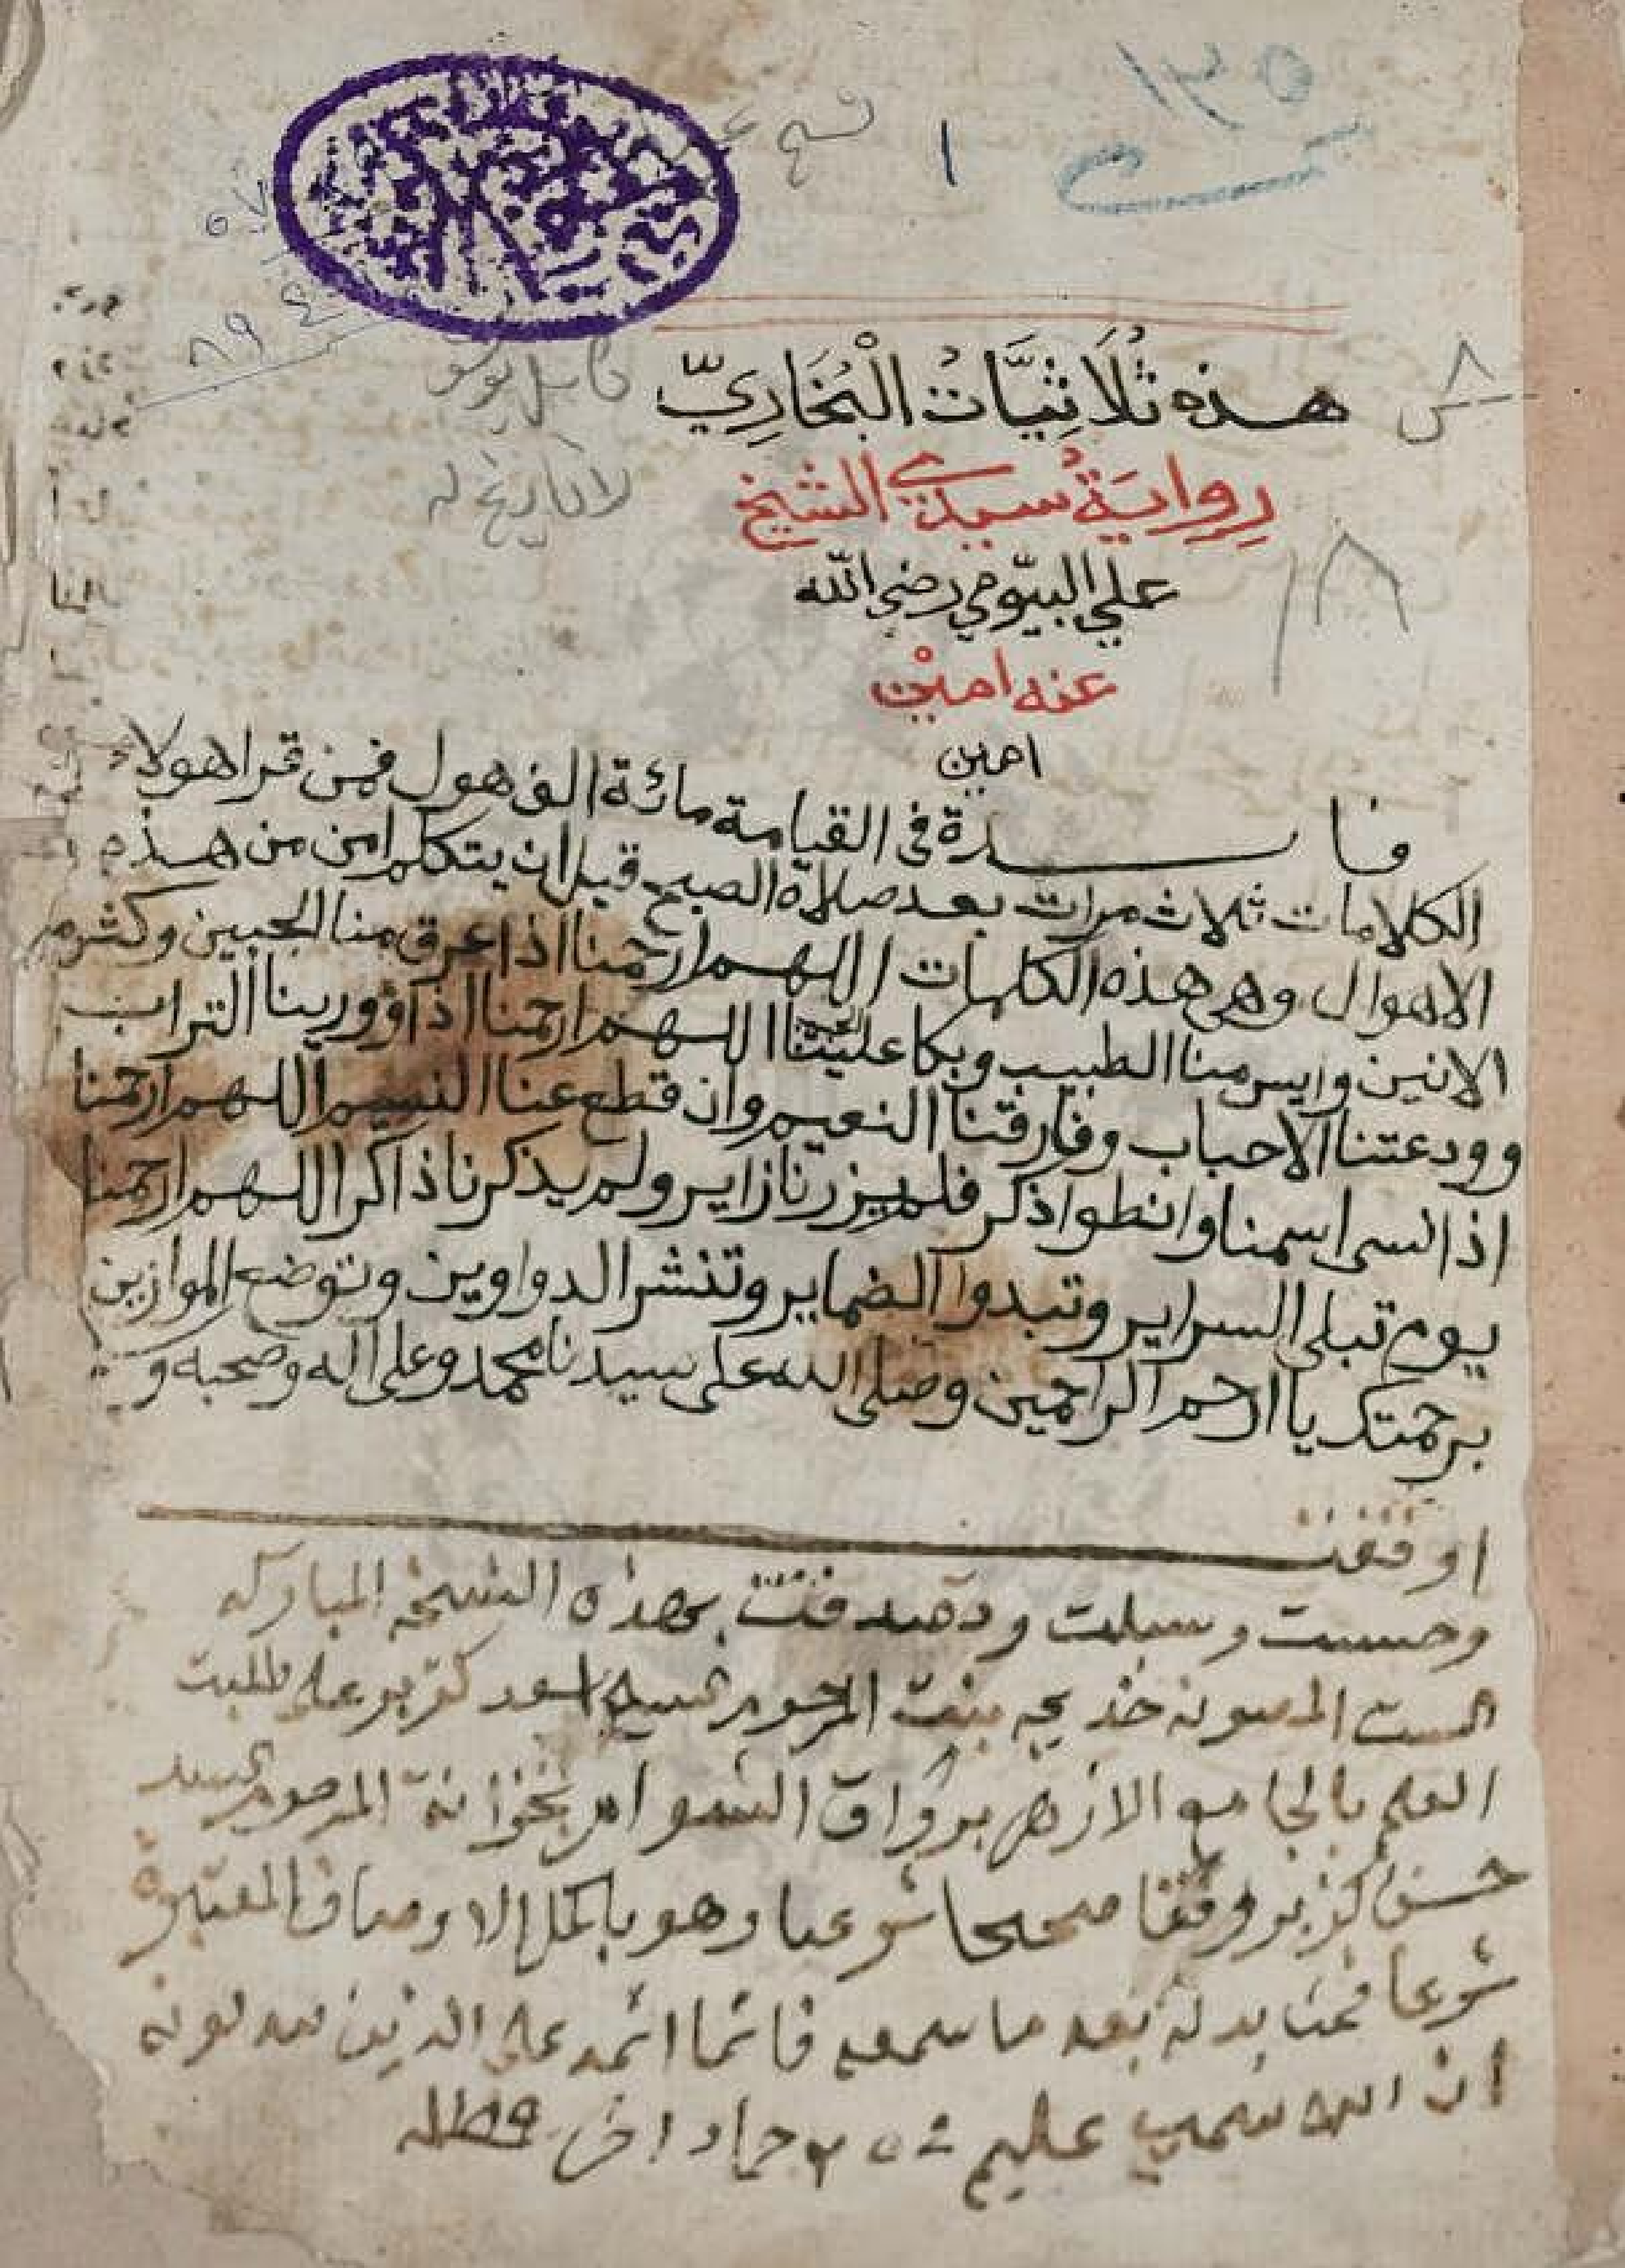 ١٣٥
١
٨
هذه ثُلَاثِيَّاتُ الْبُخَارِيّ
رواية سيدي الشيخ
علي البيّومي رضي الله
عنه امين
امين
١٨
لا تاريخ له
فايدة في القيامة مائة الف هول فمن قرا هولاء
الكلامات ثلاث مرات بعد صلاة الصبح قبل ان يتكلم امن من هذه
الاهوال وهي هذه الكلمات اللهم ارحمنا اذا عرق منا الجبين وكثر م
الانين وايس منا الطبيب وبكا علينا اللهم ارحمنا اذا وورينا التراب
وودعتنا الاحباب وفارقنا النعيم وانقطع عنا النسيم اللهم ارحمنا
اذا نسي اسمنا وانطوا ذكر فلم يزرنا زاير ولم يذكرنا ذاكر اللهم ارحمنا
يوم تبلى السراير وتبدوا الضماير وتنشر الدواوين وتوضع الموازين
برحمتك يا ارحم الراحمين وصلى الله على سيدنا محمد وعلى اله وصحبه و
اوقفت
وحبست وسبلت وتصدقت بهذه النسخة المباركه
الست المصونه خديجه بنت المرحوم اسعد كزبر على طلبت
العلم بالجامع الازهر برواق الشوام بخزانة المرحوم السيد
حسن كزبر وقفا صحيحا شرعيا وهو باكمل الاوصاف المعتبرة
شرعا فمن بدله بعد ما سمعه فانما اثمه على الذين يبدلونه
ان الله سميع عليم في جماد اخر